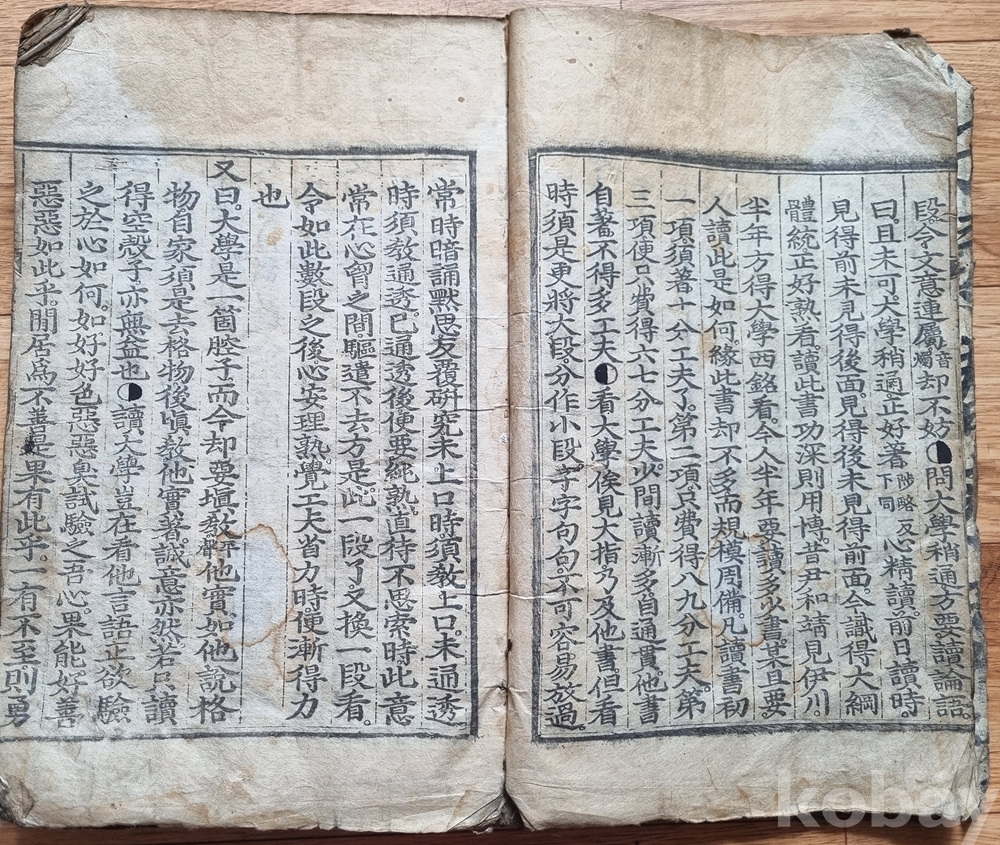 段令文意連屬音燭却不妨◐問大學稍通方要讀論語。
曰。且未可。大學稍通。正好著陟略及下同心精讀。前日讀時。
見得前未見得後面。見得後未見得前面。今識得大綱
體統。正好熟看。讀此書功深則用博。昔尹和靖見伊川。
半年方得大學西銘看。今人半年要讀多少書。某且要
人讀此是如何。緣此書却不多而規模周備。凡讀書初
一項。須著十分工夫了。第二項只費得八九分工夫。第
三項便只費得六七分工夫。少間讀漸多。自通貫。他書
自著不得多工夫◐看大學俟見大指。乃及他書。但看
時須是更將大段。分作小段。字字句句。不可容易放過。
常時暗誦默思。反覆硏究。未上口時。須敎上口。未通透
時。須敎通透。已通透後。便要純熟。直待不思索時。此意
常在心胷之間。驅遣不去方是。此一段了。又換一段看。
令如此數段之後。心安理熟。覺工夫省力時。便漸得力
也
又曰。大學是一箇腔子。而今却要塡敎他實。如他說格
物。自家須是去格物後。塡敎他實著。誠意亦然。若只讀
得空殼子。亦無益也◐讀大學。豈在看他言語。正欲驗
之於心如何。如好好色。惡惡臭。試驗之吾心。果能好善
惡惡如此乎。閒居爲不善。是果有此乎。一有不至。則勇
koba